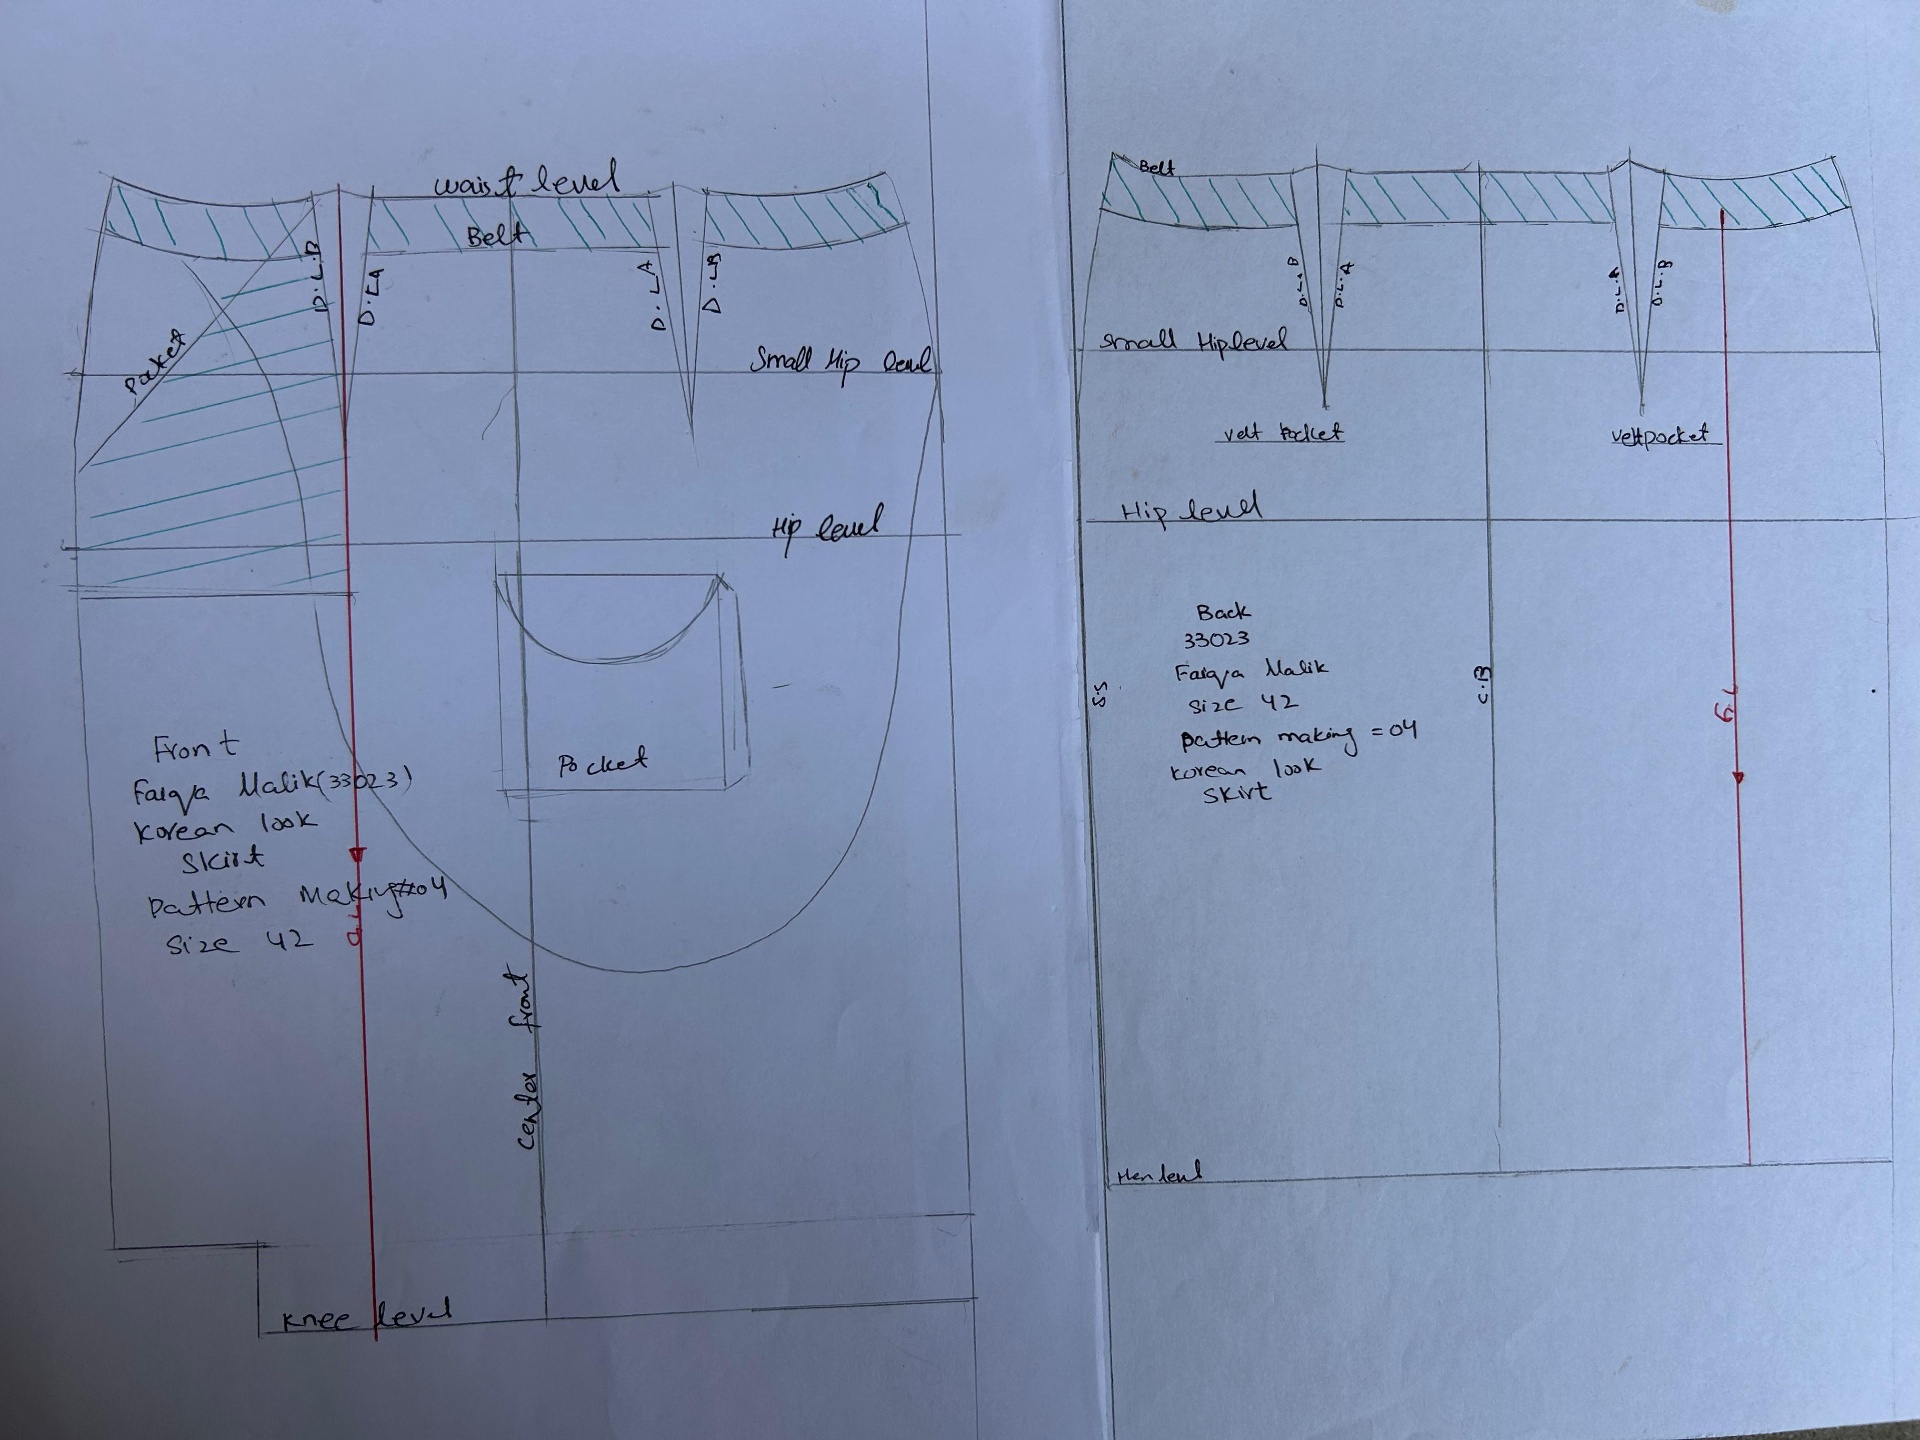 waist level
Belt
D.L.B
D.L.A
D.L.A
D.L.B
Pocket
Small Hip level
Hip level
Pocket
Front
Faiqa Malik(33023)
Korean look
Skirt
Pattern Making#04
Size 42
G.L
Center front
Knee level
Belt
D.L.B
D.L.A
D.L.A
D.L.B
Small Hiplevel
velt Pocket
veltpocket
Hip level
Back
33023
Faiqa Malik
Size 42
Pattern making =04
Korean look
Skirt
S.S
C.B
G.L
Hem level